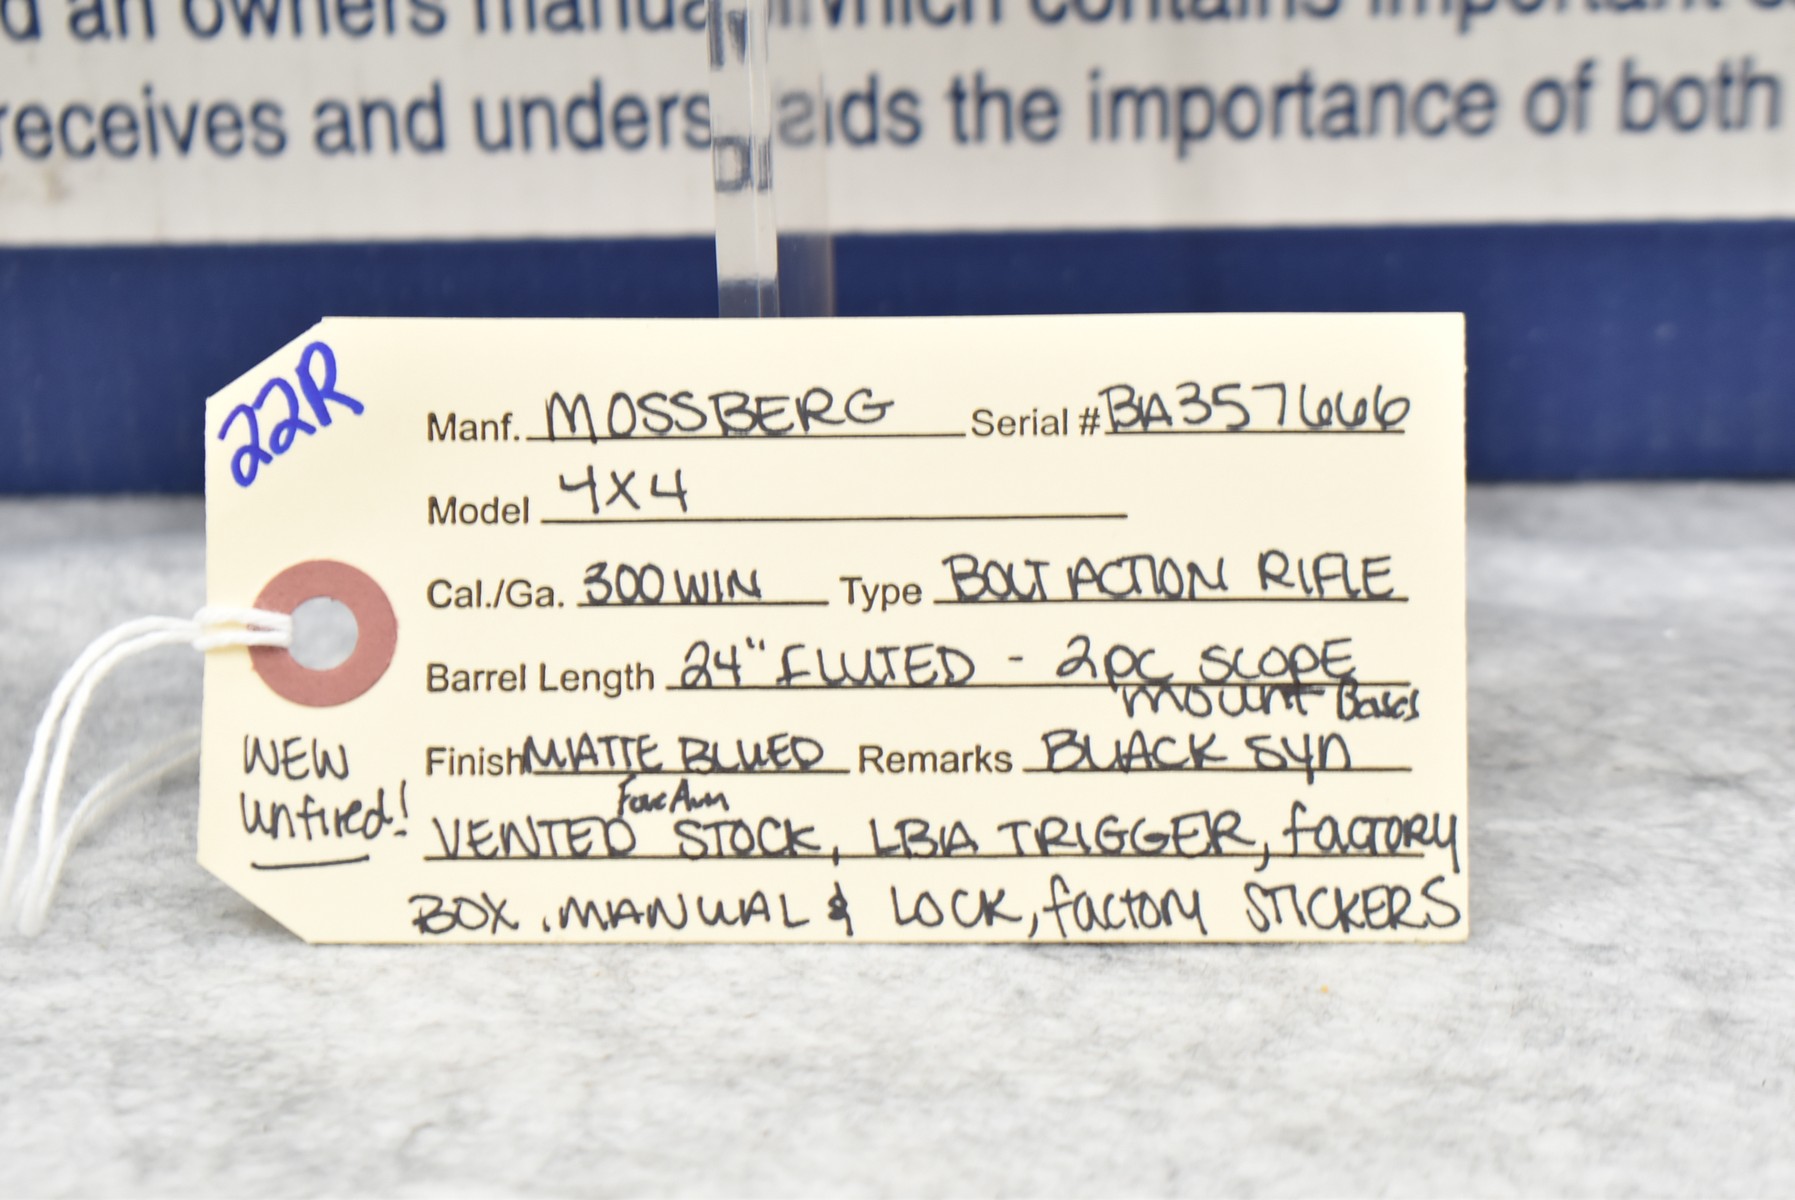 d an owners manual which contains important
receives and unders ds the importance of both
22R
Manf. MOSSBERG Serial # BA357666
Model 4X4
Cal./Ga. 300 WIN Type BOLT ACTION RIFLE
Barrel Length 24" FLUTED - 2pc SCOPE
mount Bases
Finish MATTE BLUED Remarks BLACK SYN
Fore Arm
VENTED STOCK, LBA TRIGGER, factory
BOX, MANUAL & LOCK, factory STICKERS
NEW
unfired!